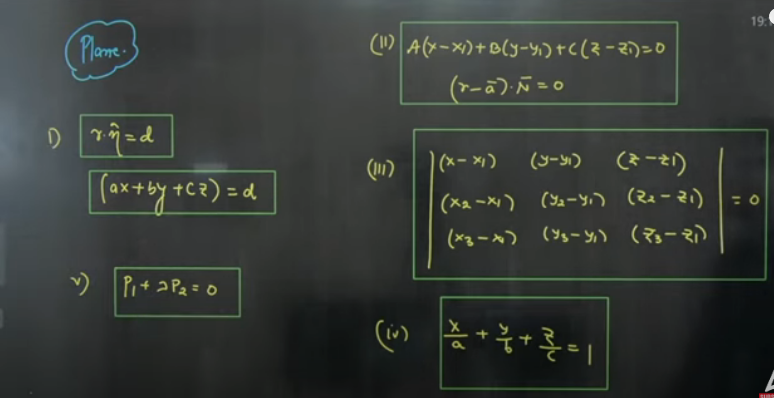 19:
Plane.
i) r·n̂ = d
(ax+by+cz) = d
(ii) A(x-x₁)+B(y-y₁)+C(z-z₁)=0
(r-ā)·N̄ = 0
(iii) | (x-x₁) (y-y₁) (z-z₁) |
| (x₂-x₁) (y₂-y₁) (z₂-z₁) | = 0
| (x₃-x₁) (y₃-y₁) (z₃-z₁) |
(iv) x/a + y/b + z/c = 1
v) P₁ + λP₂ = 0